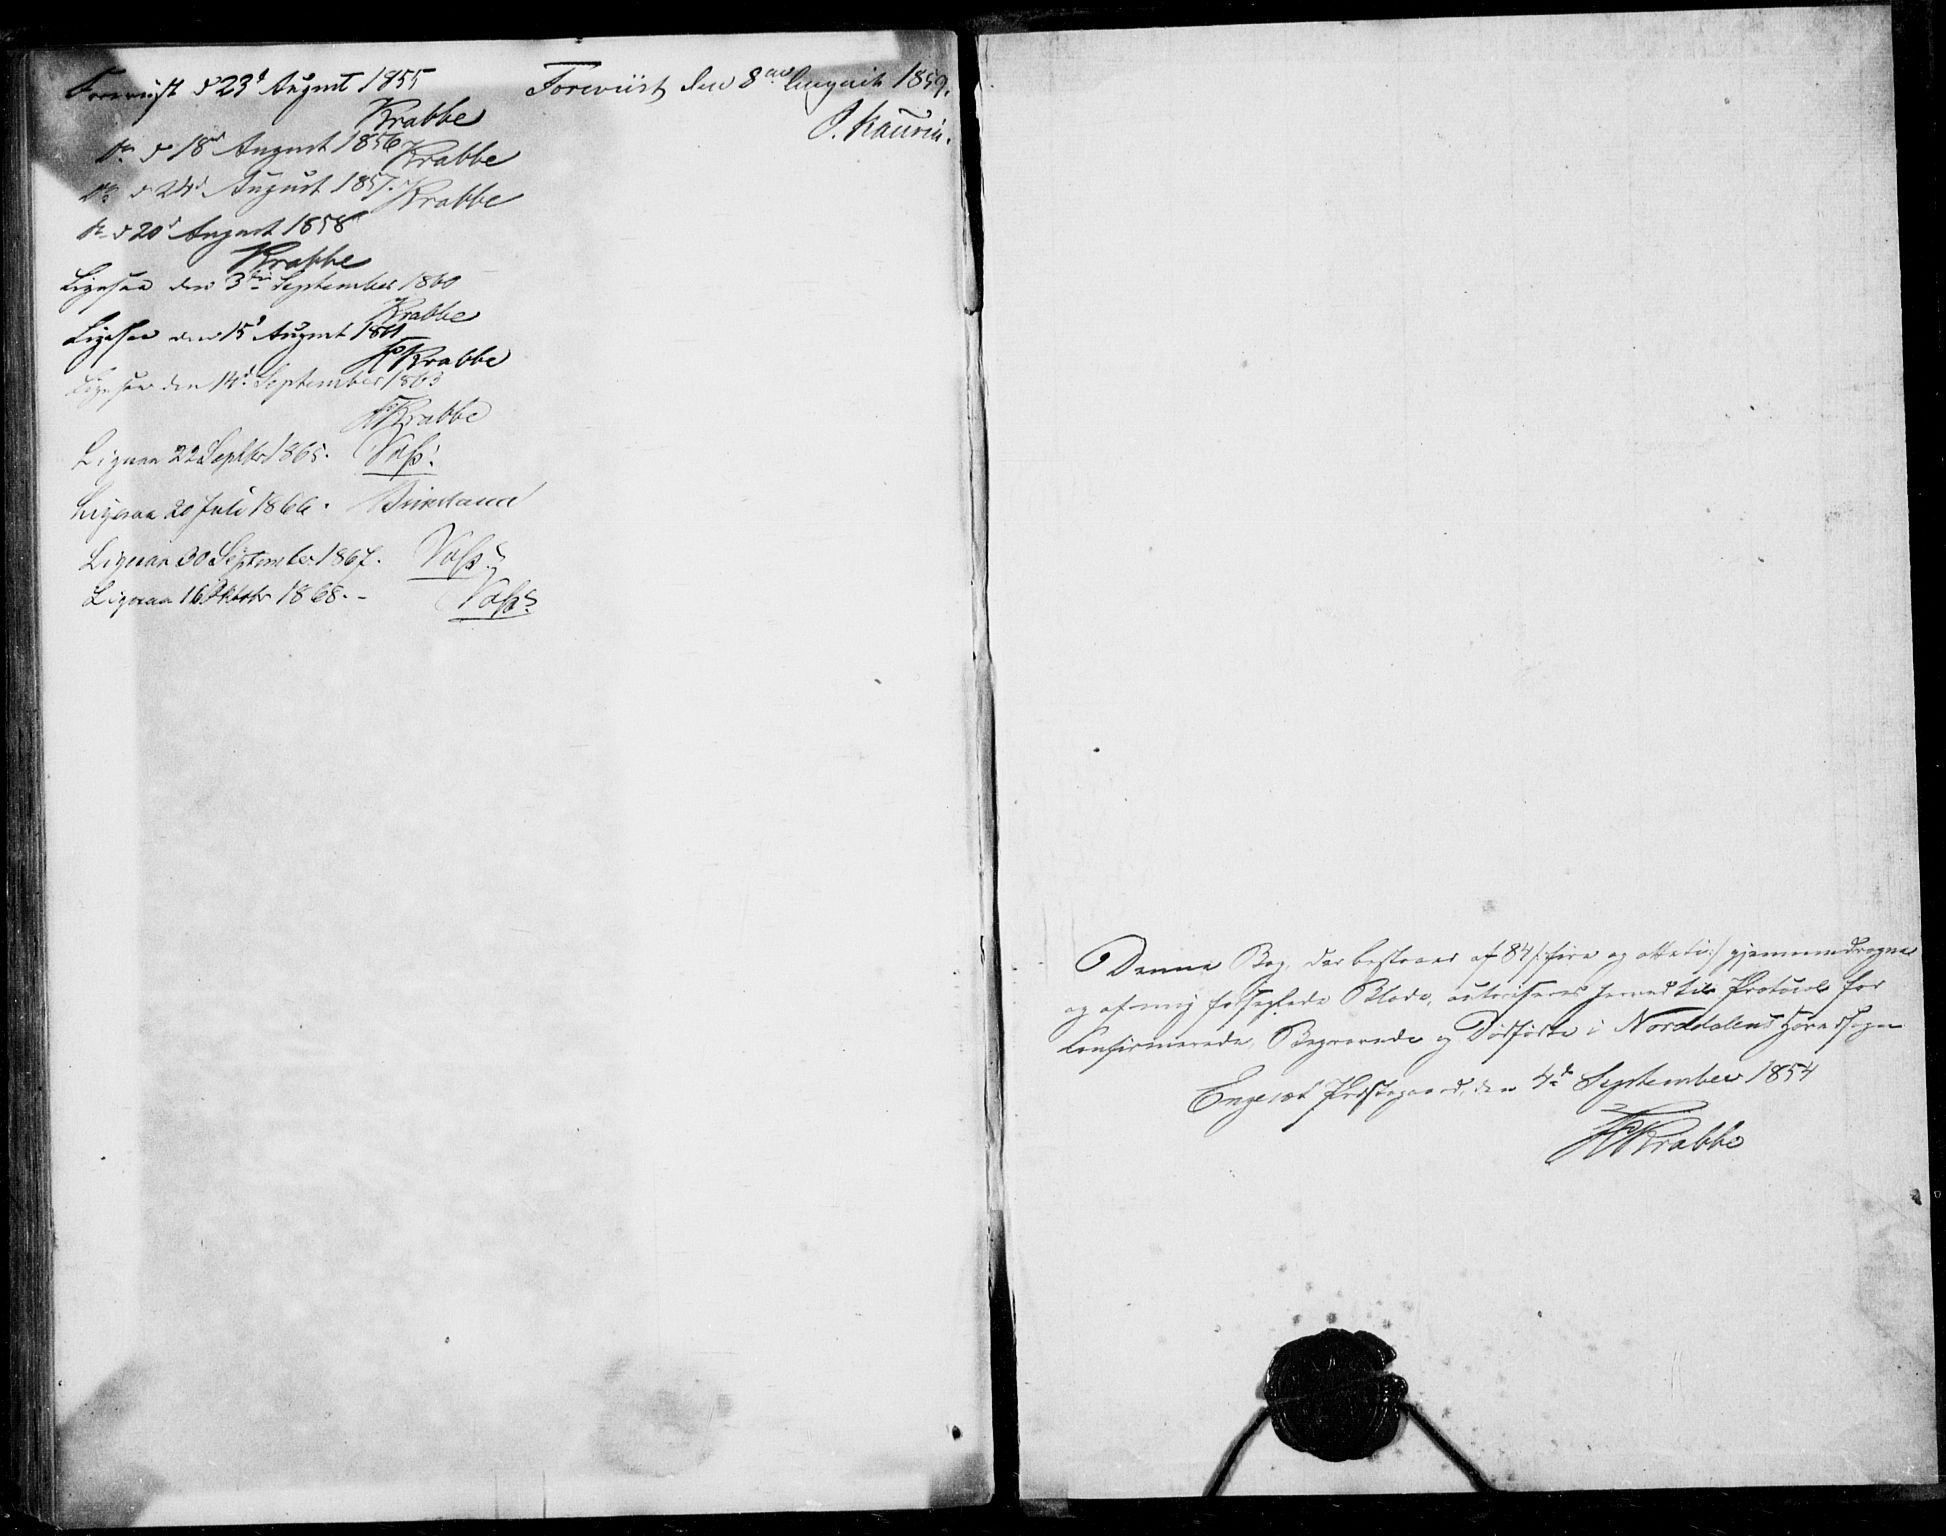 Foreviist d 23d August 1855
Krabbe
Do d 18d August 1856 Krabbe
Do d 24d August 1857. Krabbe
Do d 20d August 1858
Krabbe
Ligesaa den 3die September 1860
Krabbe
Ligesaa den 15d August 1861
HKrabbe
Ligesaa den 14d September 1863
HKrabbe
Ligesaa 22 Septbr 1865. Voss.
Ligesaa 20 Juli 1866.
Ligesaa 30 September 1867. Voss.
Ligesaa 16 Oktober 1868. - Voss.
Foreviist den 8de August 1859.
J. Kaurin.
Denne Bog, der bestaaer af 84 /: fire og otteti :/ gjennemdragne
og af mig forseglede Blade, autoriseres herved til Protocol for
Confirmerede, Begravede og Dødfødte i Norddalens Hovedsogn
Engesæt Præstegaard, den 4de September 1854
HKrabbe